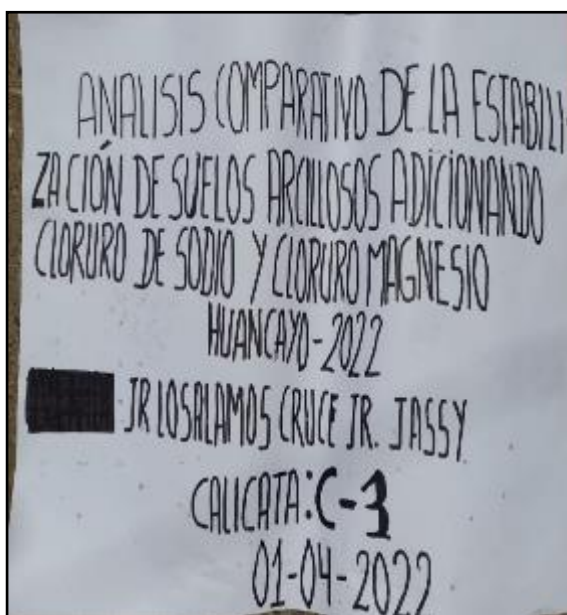 ANALISIS COMPARATIVO DE LA ESTABILI-
ZACIÓN DE SUELOS ARCILLOSOS ADICIONANDO
CLORURO DE SODIO Y CLORURO MAGNESIO
HUANCAYO-2022
JR LOS ALAMOS CRUCE JR. JASSY
CALICATA: C-3
01-04-2022